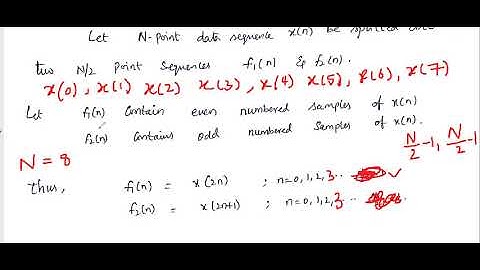 Let N-point data sequence x(n) be splitted into
two N/2 point sequences f₁(n) & f₂(n).
x(0), x(1) x(2) x(3), x(4) x(5), x(6), x(7)
Let f₁(n) contain even numbered samples of x(n)
f₂(n) contains odd numbered samples of x(n).
N = 8
N/2 -1, N/2 -1
thus, f₁(n) = x(2n) ; n=0,1,2,3..
f₂(n) = x(2n+1) ; n=0,1,2,3..